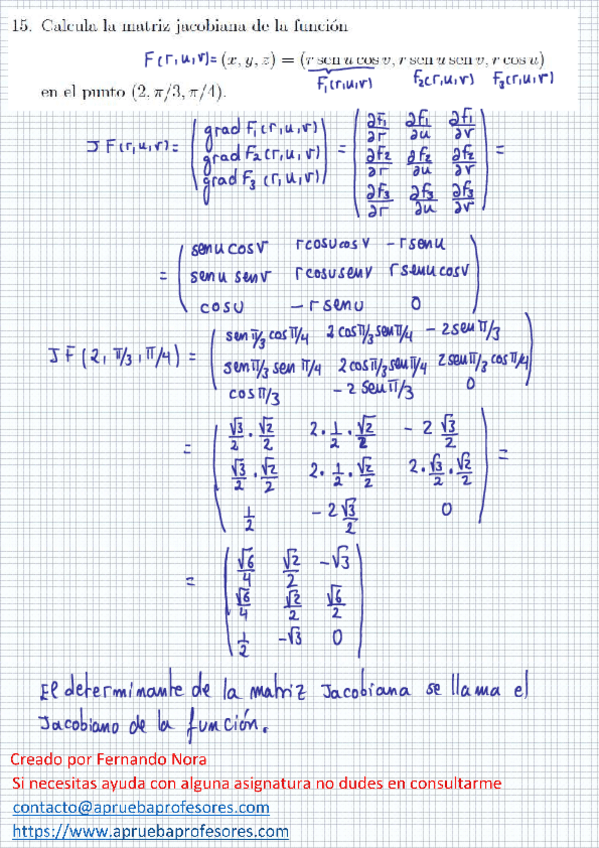 15. Calcula la matriz jacobiana de la función
F(r,u,v)= (x, y, z) = (r sen u cos v, r sen u sen v, r cos u)
F₁(r,u,v) F₂(r,u,v) F₃(r,u,v)
en el punto (2, π/3, π/4).
JF(r,u,v)= ( grad F₁(r,u,v) ) = ( ∂F₁/∂r ∂F₁/∂u ∂F₁/∂v ) =
grad F₂(r,u,v) ∂F₂/∂r ∂F₂/∂u ∂F₂/∂v
grad F₃(r,u,v) ∂F₃/∂r ∂F₃/∂u ∂F₃/∂v
senu cosv rcosu cosv -rsenu
= senu senv rcosu senv rsenu cosv
cosu -rsenu 0
JF(2, π/3, π/4) = sen π/3 cos π/4 2cos π/3 sen π/4 -2sen π/3
sen π/3 sen π/4 2cos π/3 sen π/4 2sen π/3 cos π/4
cos π/3 -2 sen π/3 0
= √3/2 · √2/2 2·1/2·√2/2 -2 √3/2 =
√3/2 · √2/2 2·1/2·√2/2 2·√3/2·√2/2
1/2 -2√3/2 0
= √6/4 √2/2 -√3
√6/4 √2/2 √6/2
1/2 -√3 0
El determinante de la matriz Jacobiana se llama el
Jacobiano de la función.
Creado por Fernando Nora
Si necesitas ayuda con alguna asignatura no dudes en consultarme
contacto@apruebaprofesores.com
https://www.apruebaprofesores.com